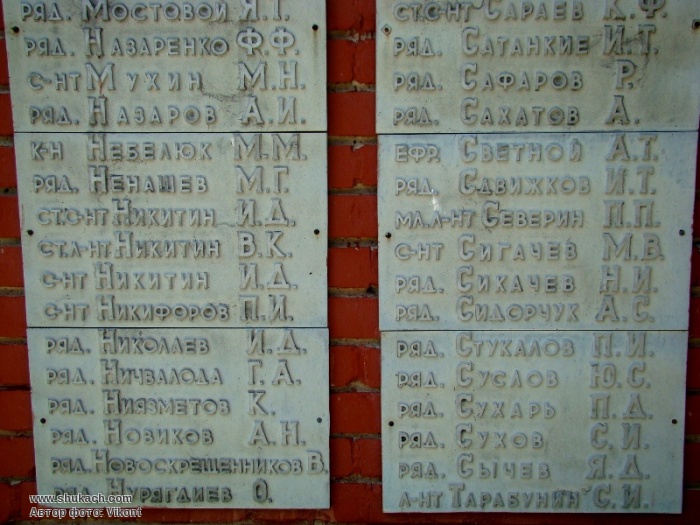 ряд. Мостовой Я.Г.
ряд. Назаренко Ф.Ф.
с-нт Мухин М.Н.
ряд. Назаров А.И.
к-н Небелюк М.М.
ряд. Ненашев М.Г.
ст.с-нт Никитин И.Д.
ст.л-нт Никитин В.К.
с-нт Никитин И.Д.
с-нт Никифоров П.И.
ряд. Николаев И.Д.
ряд. Ничвалода Г.А.
ряд. Ниязметов К.
ряд. Новиков А.Н.
ряд. Новоскрещенников В.
ряд. Нурягдиев О.
ст.с-нт Сараев К.Ф.
ряд. Сатанкие И.Т.
ряд. Сафаров Р.
ряд. Сахатов А.
ефр. Светной А.Т.
ряд. Сдвижков И.Т.
мл.л-нт Северин П.П.
с-нт Сигачев М.В.
ряд. Сикачев Н.И.
ряд. Сидорчук А.С.
ряд. Стукалов П.И.
ряд. Суслов Ю.С.
ряд. Сухарь П.Д.
ряд. Сухов С.И.
ряд. Сычев Я.Д.
л-нт Тарабунин С.И.
www.shukach.com
Автор фото: Vikont